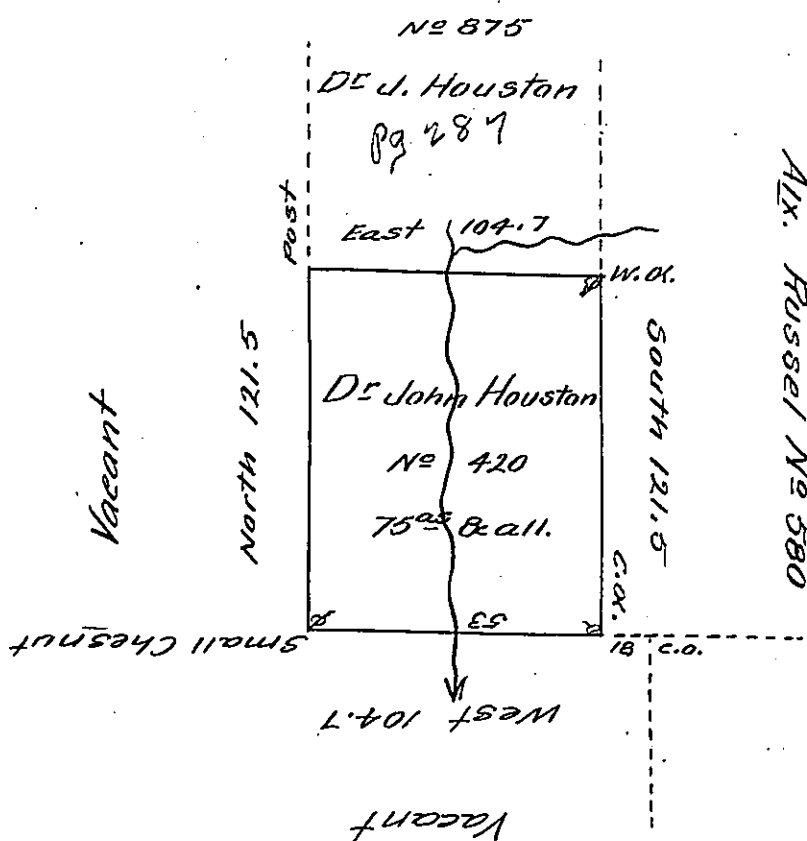 No 875
Dr J. Houston
pg 287
Post
East 104.7
W.O.
Alx. Russel No 580
North 121.5
South 121.5
Vacant
Dr John Houston
No 420
75as & all.
C.O.
53
Small Chesnut
18 C.O.
West 104.7
Vacant